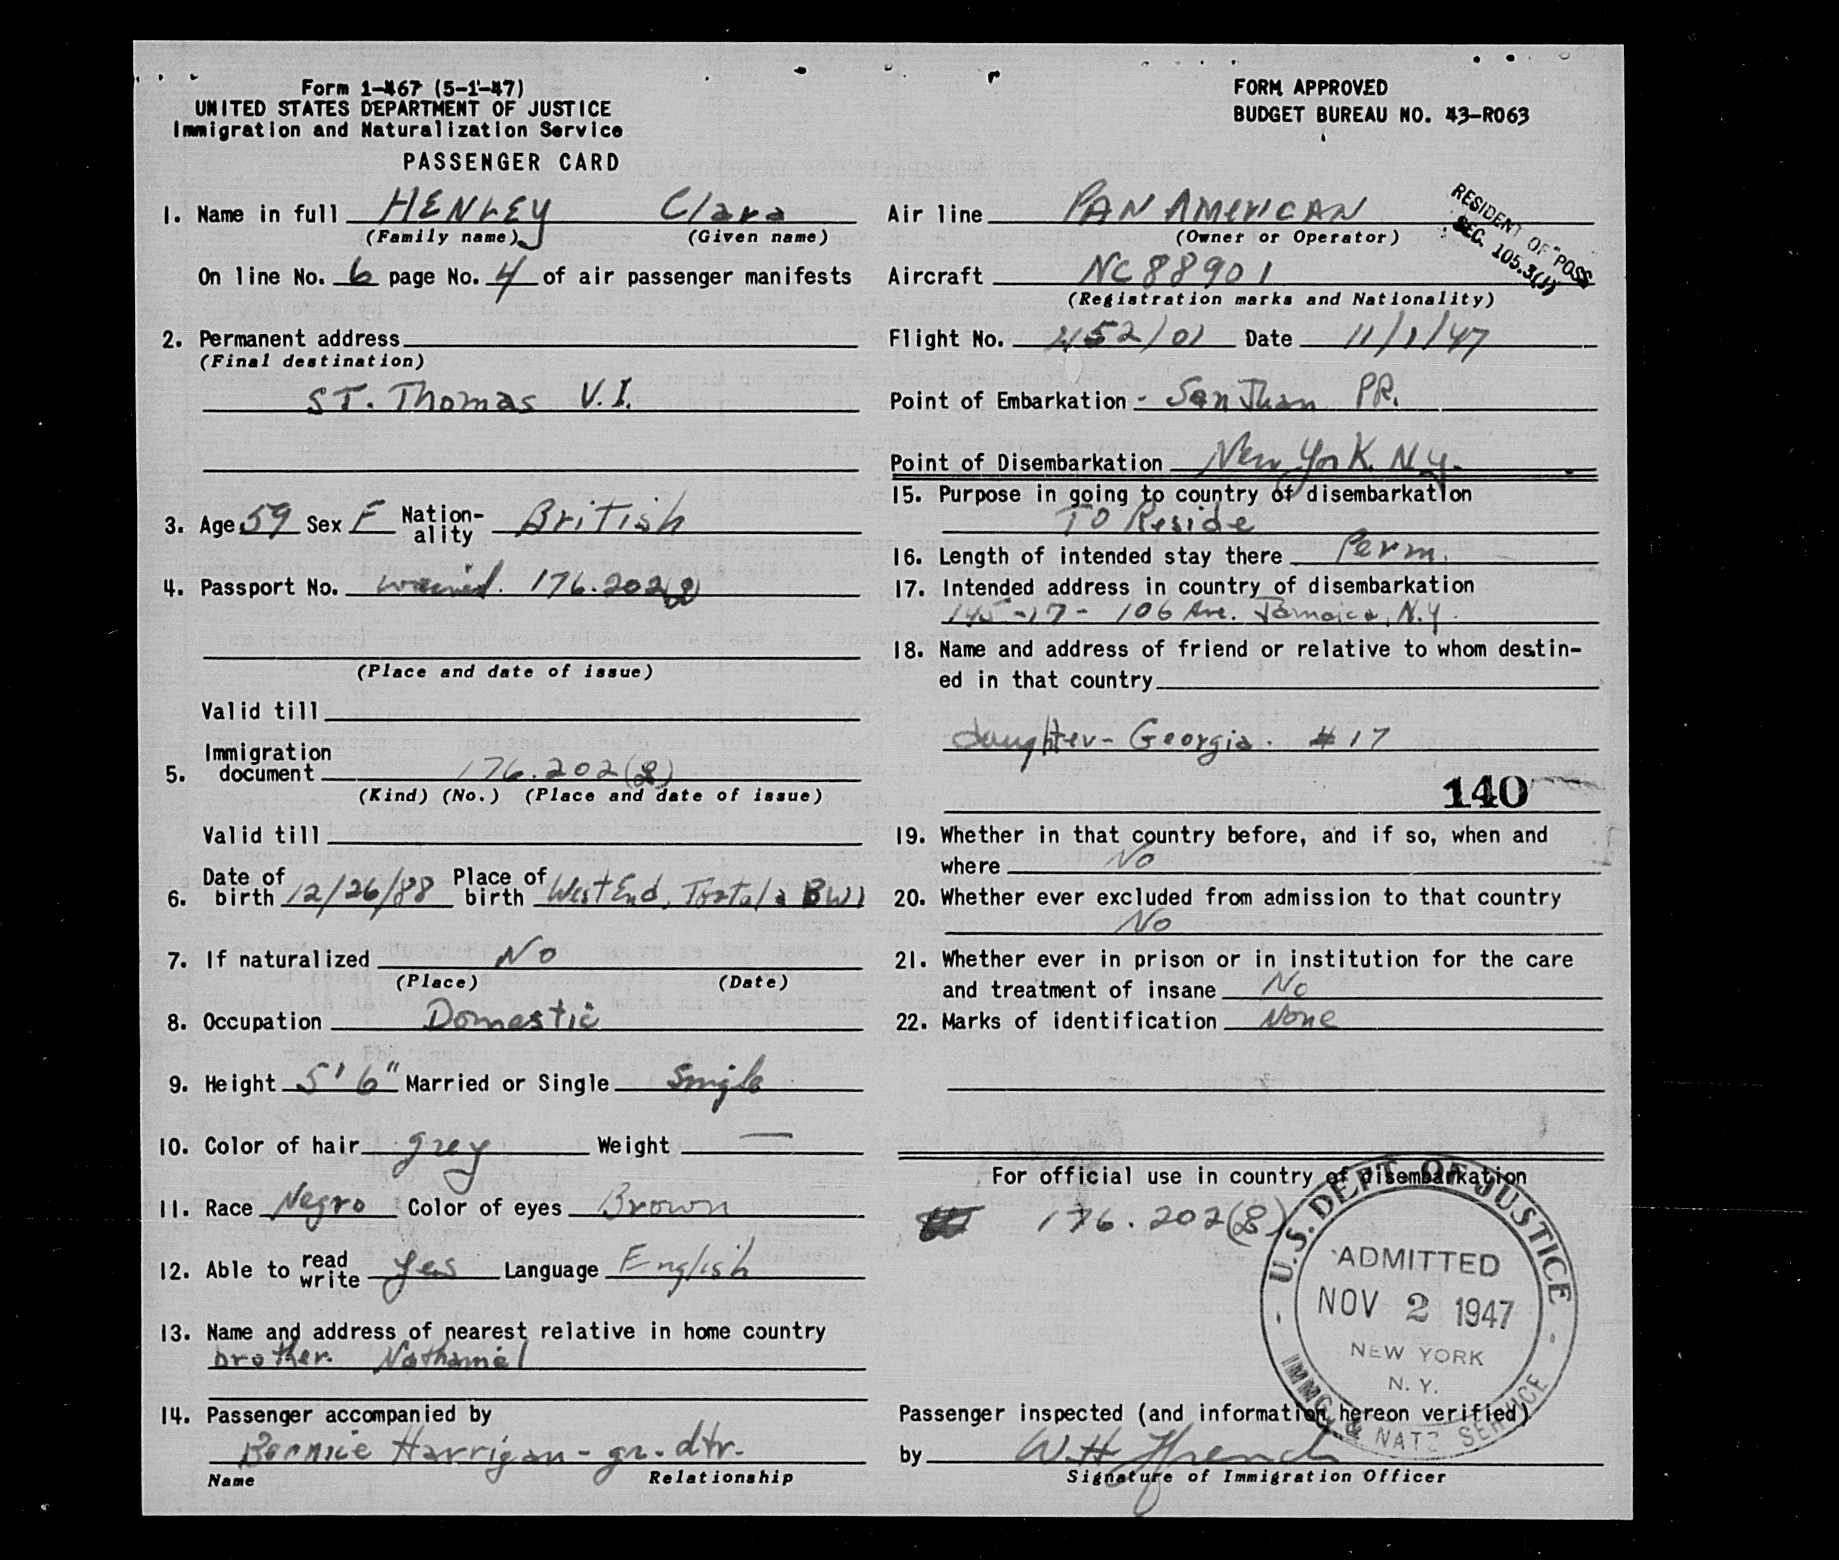 Form 1-467 (5-1-47)
UNITED STATES DEPARTMENT OF JUSTICE
Immigration and Naturalization Service
PASSENGER CARD
FORM APPROVED
BUDGET BUREAU NO. 43-R063
1. Name in full HENLEY Clara
(Family name) (Given name)
On line No. 6 page No. 4 of air passenger manifests
2. Permanent address
(Final destination)
ST. Thomas V.I.
3. Age 59 Sex F Nation-ality British
4. Passport No. waived. 176.202(g)
(Place and date of issue)
Valid till
5. Immigration document 176.202(g)
(Kind) (No.) (Place and date of issue)
Valid till
6. Date of birth 12/26/88 Place of birth West End, Tortola BWI
7. If naturalized No
(Place) (Date)
8. Occupation Domestic
9. Height 5' 6" Married or Single Single
10. Color of hair grey Weight —
11. Race Negro Color of eyes Brown
12. Able to read write yes Language English
13. Name and address of nearest relative in home country
brother. Nathaniel
14. Passenger accompanied by
Bernice Harrigan - gr. dtr.
Name Relationship
Air line PAN AMERICAN
(Owner or Operator)
RESIDENT OF POSS
SEC. 105.3(J)
Aircraft NC88901
(Registration marks and Nationality)
Flight No. 452/01 Date 11/1/47
Point of Embarkation - San Juan PR.
Point of Disembarkation New York. N.Y.
15. Purpose in going to country of disembarkation
TO Reside
16. Length of intended stay there Perm.
17. Intended address in country of disembarkation
145-17- 106 Ave. Jamaica, N.Y.
18. Name and address of friend or relative to whom destin-
ed in that country
daughter- Georgia. #17
140
19. Whether in that country before, and if so, when and
where No
20. Whether ever excluded from admission to that country
No
21. Whether ever in prison or in institution for the care
and treatment of insane No
22. Marks of identification None
For official use in country of disembarkation
176.202(g)
U.S. DEPT. OF JUSTICE
ADMITTED
NOV 2 1947
NEW YORK
N.Y.
IMMG. & NATZ SERVICE
Passenger inspected (and information hereon verified)
by W.H. French
Signature of Immigration Officer